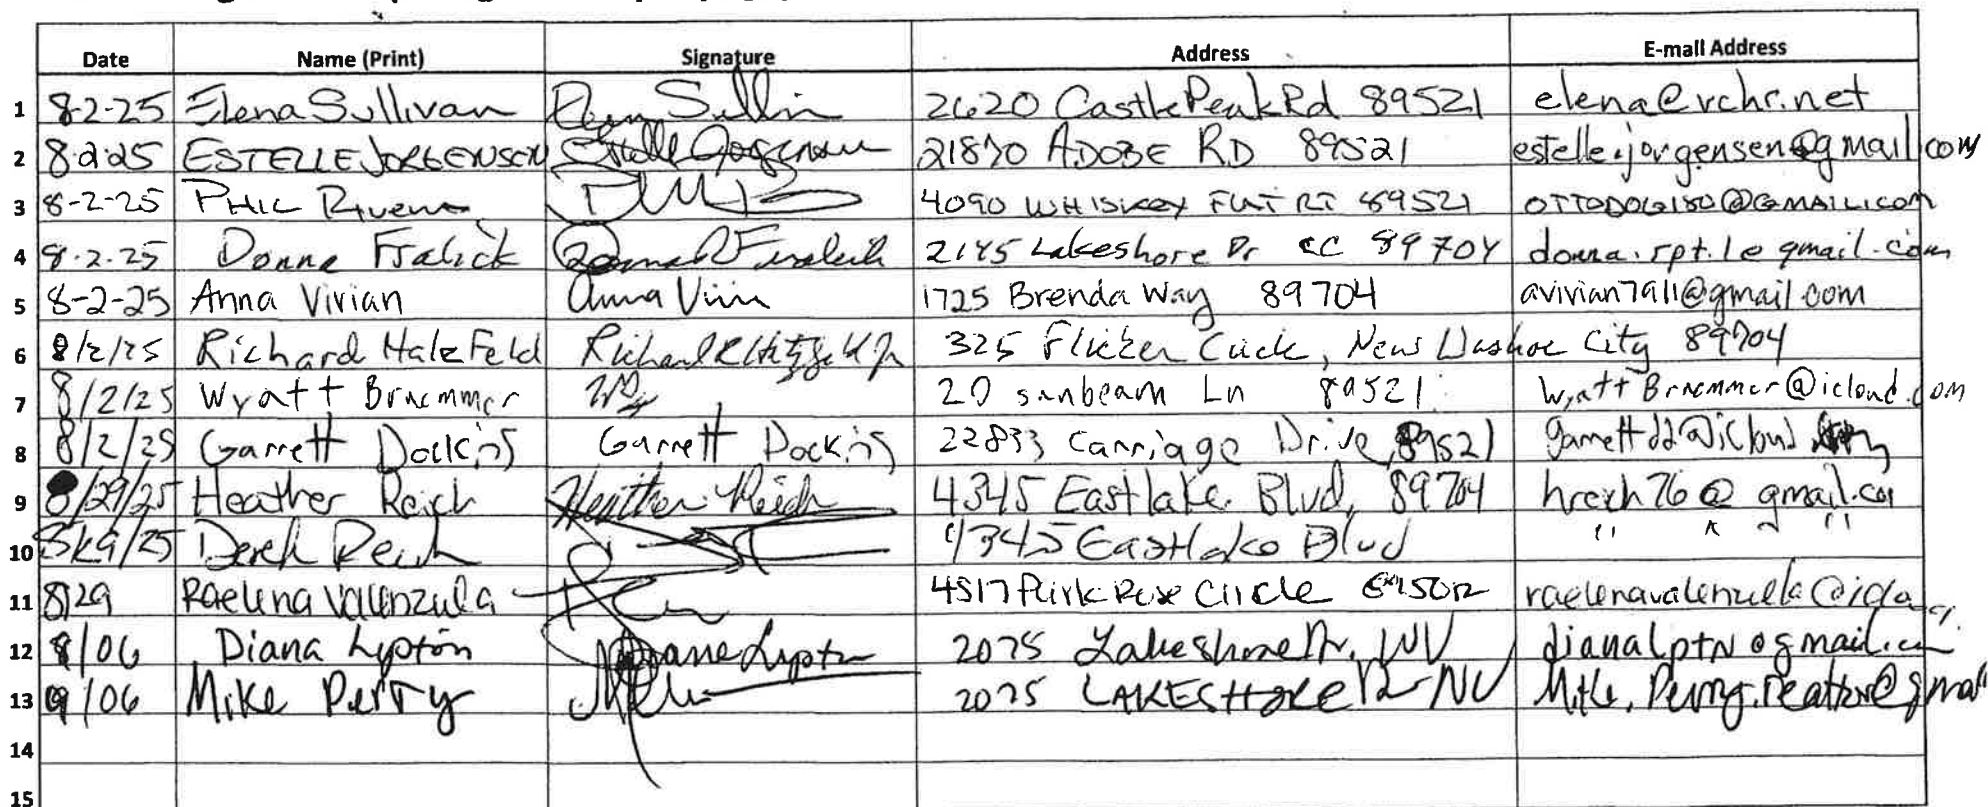 Date Name (Print) Signature Address E-mail Address
1 8-2-25 Elena Sullivan 2620 Castle Peak Rd 89521 elena@rchr.net
2 8-2-25 ESTELLE JORGENSEN Estelle Jorgensen 21870 ADOBE RD 89521 estelle.jorgensen@gmail.com
3 8-2-25 PHIL 4090 WHISKEY FLAT RD 89521 OTTODOG180@GMAIL.COM
4 8-2-25 Donna Fralick 2145 Lakeshore Dr CC 89704 donna.rpt.1@gmail.com
5 8-2-25 Anna Vivian Anna 1725 Brenda Way 89704 avivian7911@gmail.com
6 8/2/25 Richard 325 Flicker Circle, New Washoe City 89704
7 8/2/25 Wyatt Bruemmer 20 sunbeam Ln 89521 WyattBruemmer@icloud.com
8 8/2/25 Garrett Dockins Garrett Dockins 22833 Carriage Drive 89521 garrettdd@icloud
9 8/29/25 Heather Reich Heather Reich 4345 Eastlake Blvd, 89704 hreich76@gmail.com
10 8/29/25 Derek Reich 4345 Eastlake Blvd " "
11 8/29 Raelena Valenzula 4517 Pink Rose Circle
12 Diana Lypton 2075 Lakeshore Dr. dianalptn@gmail.com
13 9/06 Mike Perry 2075 LAKESHORE Dr NV
14
15